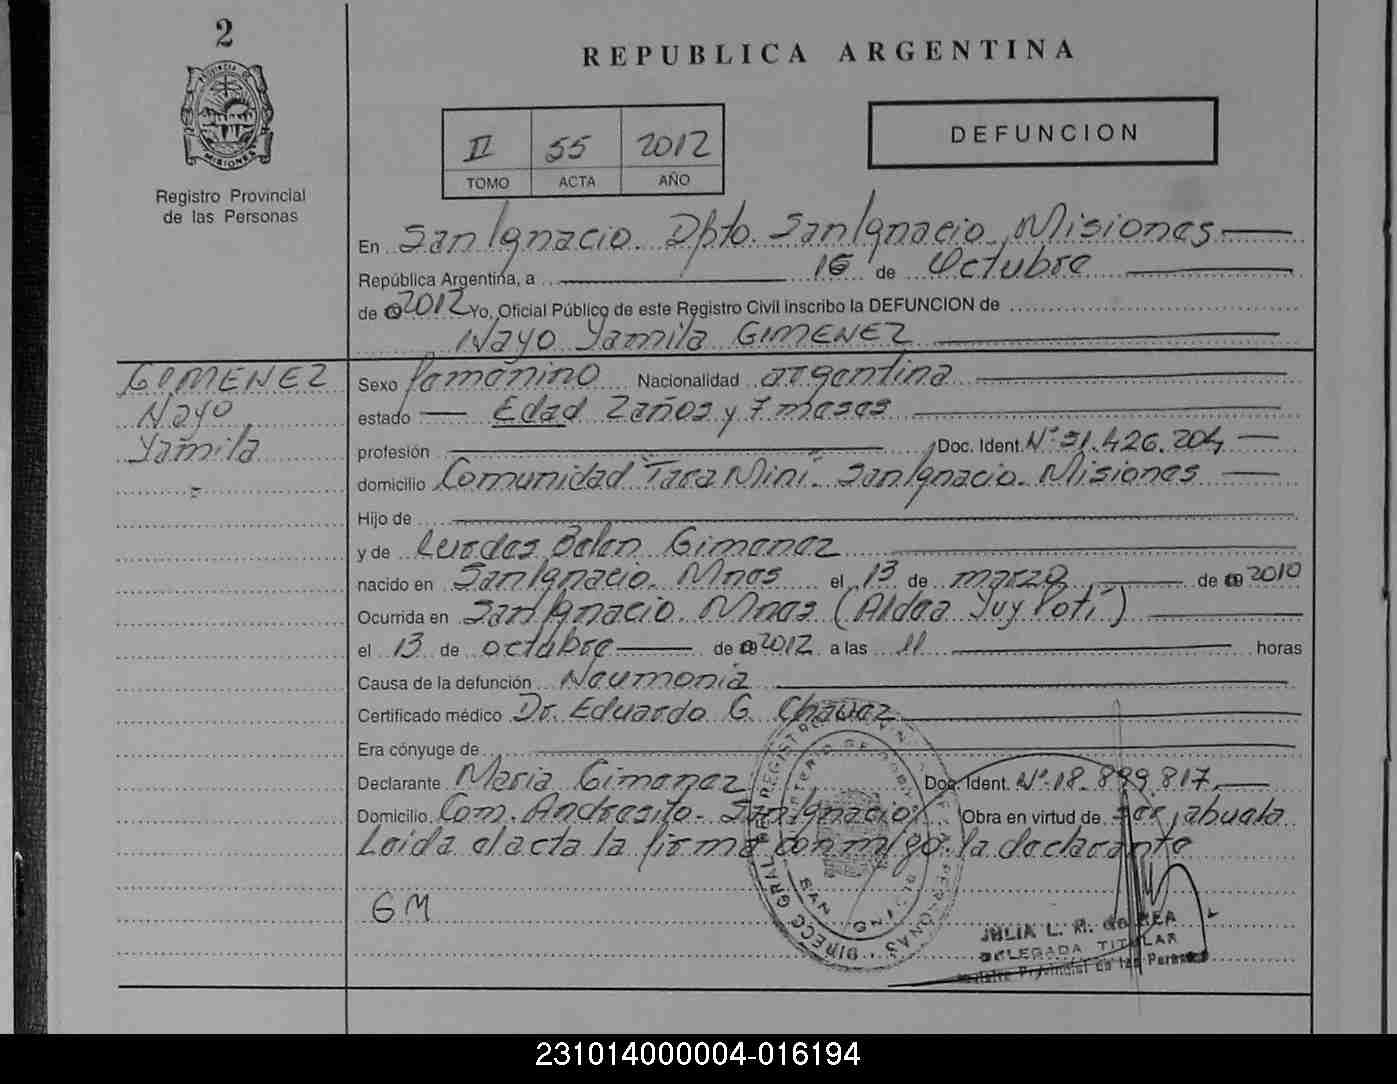 2
PROVINCIA DE
MISIONES
Registro Provincial
de las Personas
REPUBLICA ARGENTINA
II 55 2012
TOMO ACTA AÑO
DEFUNCION
En San Ignacio. Dpto. San Ignacio. Misiones
República Argentina, a 16 de Octubre
de 2012 Yo, Oficial Público de este Registro Civil inscribo la DEFUNCION de
Nayo Yamila GIMENEZ
GIMENEZ
Nayo
Yamila
Sexo femenino Nacionalidad argentina
estado — Edad 2 años y 7 meses
profesión Doc. Ident. Nº 51.426.204
domicilio Comunidad "Tava Mini". San Ignacio. Misiones
Hijo de
y de Lurdes Belen Gimenez
nacido en San Ignacio. Mnes el 13 de marzo de 2010
Ocurrida en San Ignacio. Mnes (Aldea Yvy Poti)
el 13 de octubre de 2012 a las 11 horas
Causa de la defunción Neumonia
Certificado médico Dr. Eduardo G. Chavez
Era cónyuge de
Declarante Maria Gimenez Doc. Ident. Nº 18.899.817
Domicilio Com. Andresito. San Ignacio Obra en virtud de ser abuela
Leida el acta la firma conmigo la declarante
GM
JULIA L. M. de REA
DELEGADA TITULAR
Registro Provincial de las Personas
231014000004-016194